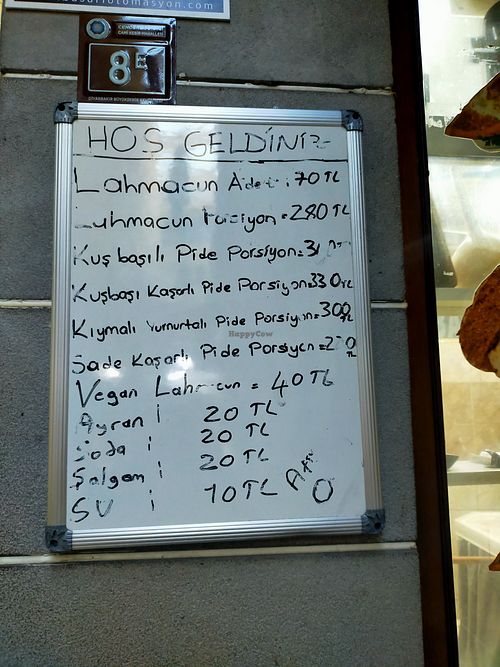 otomasyon.com
8E
HOŞ GELDİNİZ
Lahmacun Adet : 70 TL
Lahmacun Porsiyon = 280 TL
Kuş başılı Pide Porsiyon =
Kuşbaşı Kaşarlı Pide Porsiyon = 330 TL
Kıymalı Yumurtalı Pide Porsiyon = 300 TL
Sade Kaşarlı Pide Porsiyon =
Vegan Lahmacun = 40 TL
Ayran : 20 TL
Soda : 20 TL
Şalgam : 20 TL
SU : 10 TL
HappyCow